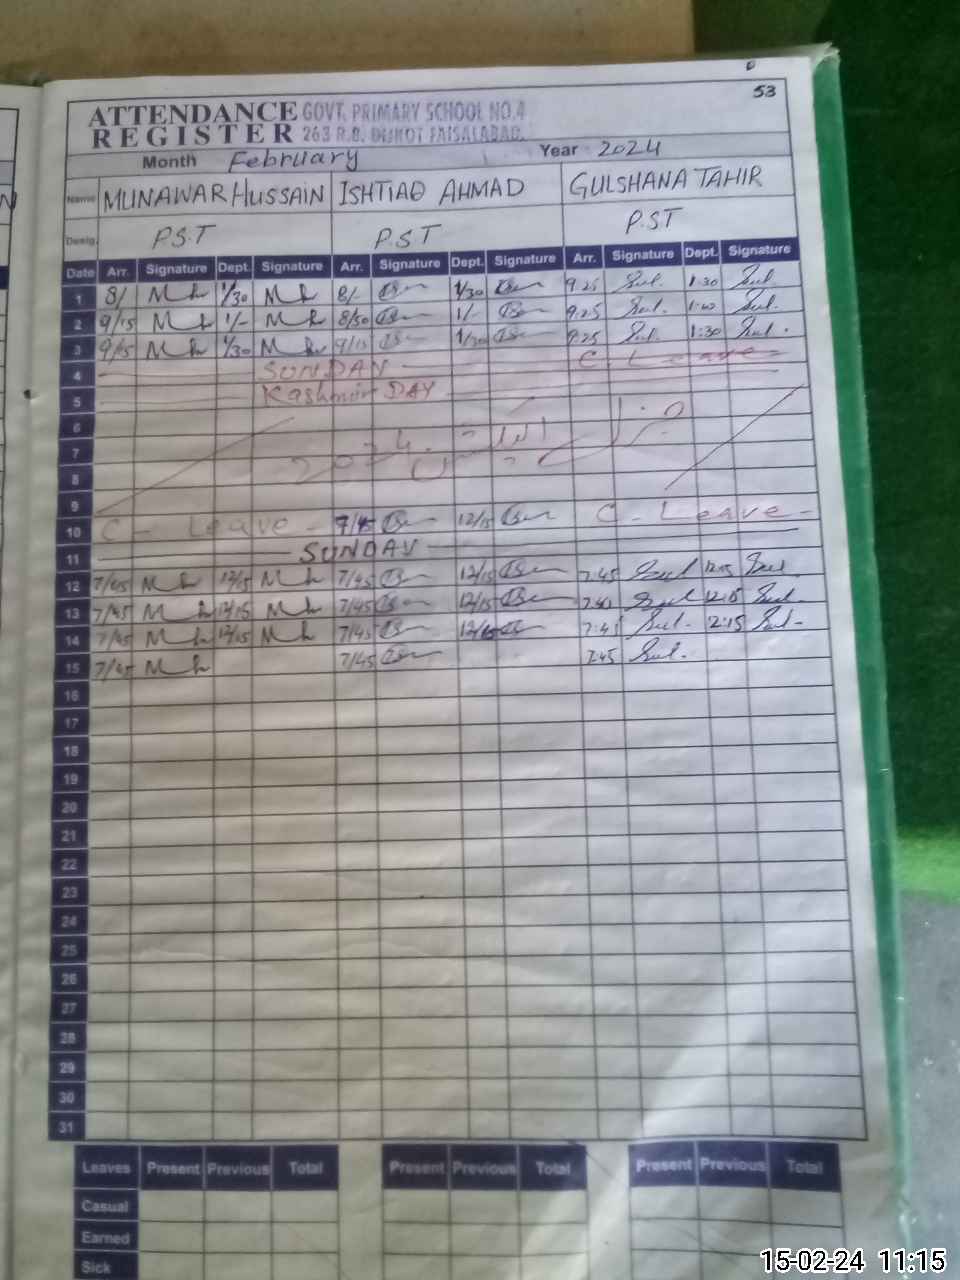 53
ATTENDANCE GOVT. PRIMARY SCHOOL NO.4
REGISTER 263 R.B. DIJKOT FAISALABAD.
Month February Year 2024
Name MUNAWAR HUSSAIN ISHTIAQ AHMAD GULSHANA TAHIR
Desig. P.S.T P.S.T P.S.T
Date Arr. Signature Dept. Signature Arr. Signature Dept. Signature Arr. Signature Dept. Signature
1 8/ 1/30 8/- 1/30 9.25 1:30
2 9/15 1/- 8/50 1/- 9.25
3 9/15 1/30 9/15 1/30 9.25 1:30
4 SUNDAY C. Leave
5 Kashmir DAY
6
7 جنرل الیکشن 2024
8
9
10 C - Leave - 7/45 12/15 C. Leave -
11 SUNDAY
12 7/45 12/15 7/45 12/15 7:45 12:15
13 7/45 12/15 7/45 12/15 7:40 12:15
14 7/45 12/15 7/45 12/15 7:45 2:15
15 7/45 7/45 7:45
16
17
18
19
20
21
22
23
24
25
26
27
28
29
30
31
Leaves Present Previous Total Present Previous Total Present Previous Total
Casual
Earned
Sick
15-02-24 11:15